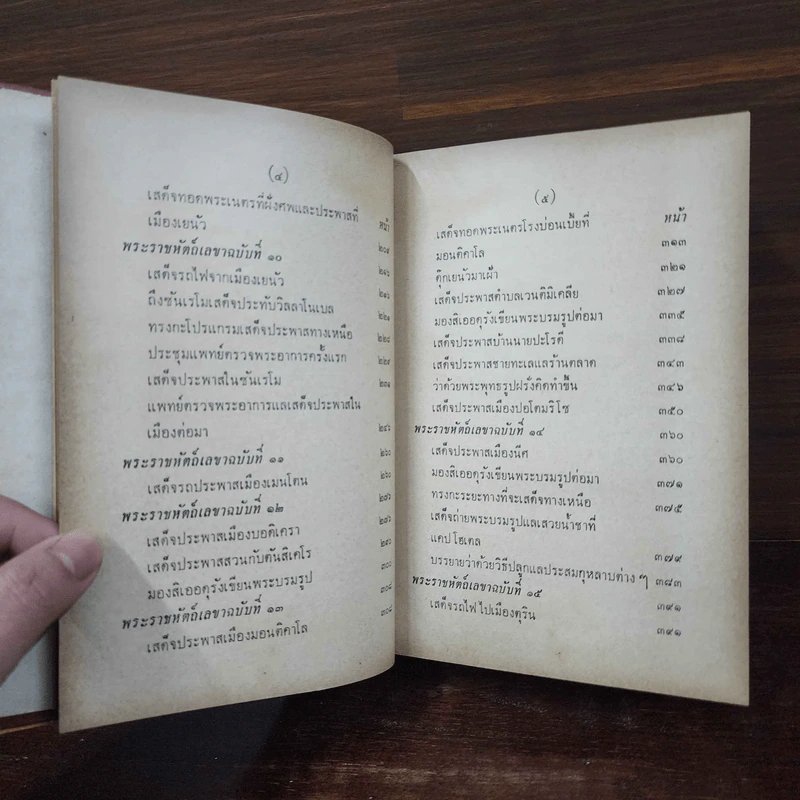 (๔)
เสด็จทอดพระเนตรที่ฝังศพและประพาสที่ หน้า
เมืองเยนัว ๒๐๙
พระราชหัตถ์เลขาฉบับที่ ๑๐ ๒๑๖
เสด็จรถไฟจากเมืองเยนัว ๒๑๖
ถึงซันเรโมเสด็จประทับวิลลาโนเบล ๒๒๑
ทรงกะโปรแกรมเสด็จประพาสทางเหนือ ๒๒๘
ประชุมแพทย์ตรวจพระอาการครั้งแรก ๒๒๙
เสด็จประพาสในซันเรโม ๒๓๑
แพทย์ตรวจพระอาการแลเสด็จประพาสใน
เมืองต่อมา ๒๔๖
พระราชหัตถ์เลขาฉบับที่ ๑๑ ๒๖๐
เสด็จรถประพาสเมืองเมนโตน ๒๖๐
พระราชหัตถ์เลขาฉบับที่ ๑๒ ๒๗๖
เสด็จประพาสเมืองบอดิเครา ๒๗๖
เสด็จประพาสสวนกับตันสิเคโร ๒๘๐
มองสิเออดุรังเขียนพระบรมรูป ๓๐๐
พระราชหัตถ์เลขาฉบับที่ ๑๓ ๓๐๘
เสด็จประพาสเมืองมอนติคาโล ๓๐๘
(๕)
หน้า
เสด็จทอดพระเนตรโรงบ่อนเบี้ยที่
มอนติคาโล ๓๑๓
ดุ๊กเยนัวมาเฝ้า ๓๒๑
เสด็จประพาสตำบลเวนติมิเคลีย ๓๒๗
มองสิเออดุรังเขียนพระบรมรูปต่อมา ๓๓๕
เสด็จประพาสบ้านนายปะโรดี ๓๓๘
เสด็จประพาสชายทะเลแลร้านตลาด ๓๔๓
ว่าด้วยพระพุทธรูปฝรั่งคิดทำขึ้น ๓๔๖
เสด็จประพาสเมืองปอโตมริโซ ๓๕๐
พระราชหัตถ์เลขาฉบับที่ ๑๔ ๓๖๐
เสด็จประพาสเมืองนีศ ๓๖๐
มองสิเออดุรังเขียนพระบรมรูปต่อมา ๓๗๑
ทรงกะระยะทางที่จะเสด็จทางเหนือ ๓๗๕
เสด็จถ่ายพระบรมรูปแลเสวยน้ำชาที่
แคปโฮเตล ๓๗๙
บรรยายว่าด้วยวิธีปลูกแลประสมกุหลาบต่าง ๆ ๓๘๓
พระราชหัตถ์เลขาฉบับที่ ๑๕ ๓๙๑
เสด็จรถไฟไปเมืองตุริน ๓๙๑